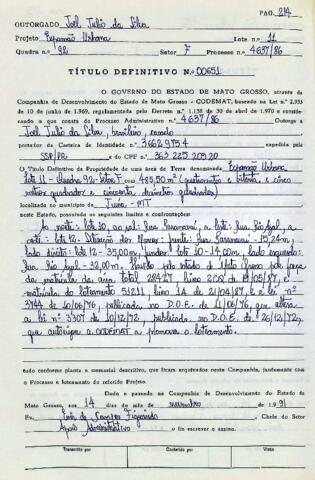 PAG. 214
OUTORGADO Joel Julio da Silva
Projeto Expansão Urbana Lote n.º 11
Quadra n.º 92 Setor F Processo n.º 4637/86
TÍTULO DEFINITIVO N.º 00651
O GOVERNO DO ESTADO DE MATO GROSSO, através da
Companhia de Desenvolvimento do Estado de Mato Grosso - CODEMAT, baseado na Lei n.º 2.933
de 10 de junho de 1969, regulamentada pelo Decreto n.º 1.138 de 30 de abril de 1970 e conside-
rando o que consta do Processo Administrativo n.º 4637/86 Outorga a
Joel Julio da Silva, brasileiro, casado
portador da Carteira de Identidade n.º 3662975-4 expedida pela
SSP/PR e do CPF n.º 363 225 209 20
O Título Definitivo de Propriedade de uma área de Terra denominada Expansão Urbana
lote 11 - Quadra 92 - Setor F com 485,50 m² (quatrocentos e oitenta e cinco
metros quadrados e cinquenta decímetros quadrados)
localizado no município de Juína - MT
neste Estado, possuindo os seguintes limites e confrontações
ao norte: lote 10, ao sul: Rua Paranavaí, a leste: Rua
norte: lote 12. Situação dos Marcos: frente: Rua Paranavaí - 15,24m,
lado direito: lote 12 - 35,00m, fundos: lote 10 - 14,00m, lado esquerdo:
Rua - 32,00m. pelo estado de Mato Grosso por força
da matrícula da área total 28427, livro
matrícula do loteamento 51211 livro 1A de 21/04/87, e a lei nº
3744 de 10/06/76, publicada no D.O.E. de 11/06/76, que altera
a lei nº 3307 de 10/12/72, publicada no D.O.E. de 26/12/72,
que autorizou a CODEMAT a promover o loteamento.
tudo conforme planta e memorial descritivo, que ficam arquivados nesta Companhia, juntamente com
o Processo e loteamento do referido Projeto.
Dado e passado na Companhia de Desenvolvimento do Estado de
Mato Grosso, aos 14 dias do mês de novembro de 1991
Eu, Figueiredo Chefe do Setor
Apoio Administrativo o fiz escrever e assino.
Transcrito por Conferido por Visto